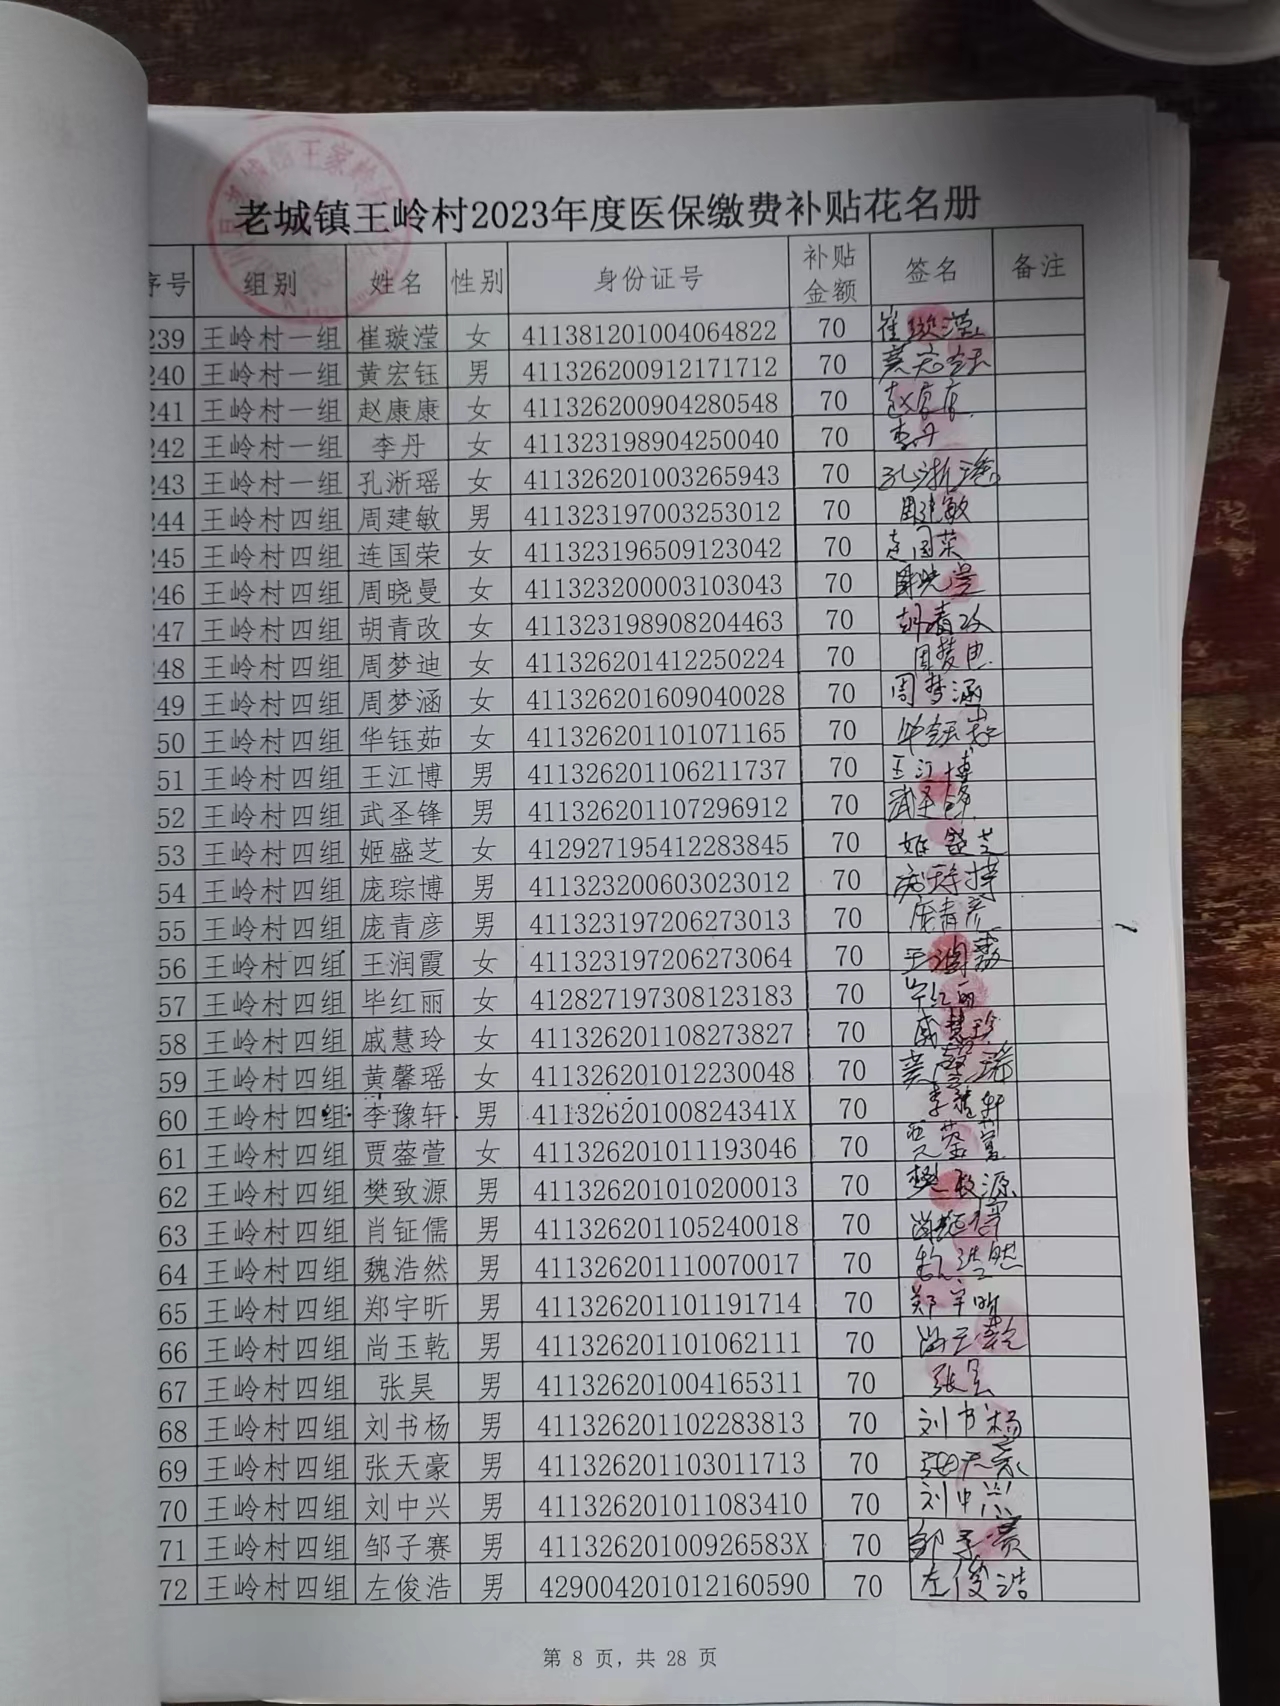 老城镇王岭村2023年度医保缴费补贴花名册
序号 组别 姓名 性别 身份证号 补贴金额 签名 备注
239 王岭村一组 崔璇滢 女 411381201004064822 70 崔璇滢
240 王岭村一组 黄宏钰 男 411326200912171712 70 黄宏钰
241 王岭村一组 赵康康 女 411326200904280548 70 赵康康
242 王岭村一组 李丹 女 411323198904250040 70 李丹
243 王岭村一组 孔淅瑶 女 411326201003265943 70 孔淅瑶
244 王岭村四组 周建敏 男 411323197003253012 70 周建敏
245 王岭村四组 连国荣 女 411323196509123042 70 连国荣
246 王岭村四组 周晓曼 女 411323200003103043 70 周晓曼
247 王岭村四组 胡青改 女 411323198908204463 70 胡青改
248 王岭村四组 周梦迪 女 411326201412250224 70 周梦迪
49 王岭村四组 周梦涵 女 411326201609040028 70 周梦涵
50 王岭村四组 华钰茹 女 411326201101071165 70 华钰茹
51 王岭村四组 王江博 男 411326201106211737 70 王江博
52 王岭村四组 武圣锋 男 411326201107296912 70 武圣锋
53 王岭村四组 姬盛芝 女 412927195412283845 70 姬盛芝
54 王岭村四组 庞琮博 男 411323200603023012 70 庞琮博
55 王岭村四组 庞青彦 男 411323197206273013 70 庞青彦
56 王岭村四组 王润霞 女 411323197206273064 70 王润霞
57 王岭村四组 毕红丽 女 412827197308123183 70 毕红丽
58 王岭村四组 戚慧玲 女 411326201108273827 70 戚慧玲
59 王岭村四组 黄馨瑶 女 411326201012230048 70 黄馨瑶
60 王岭村四组 李豫轩 男 41132620100824341X 70 李豫轩
61 王岭村四组 贾蓥萱 女 411326201011193046 70 贾蓥萱
62 王岭村四组 樊致源 男 411326201010200013 70 樊致源
63 王岭村四组 肖钲儒 男 411326201105240018 70
64 王岭村四组 魏浩然 男 411326201110070017 70 魏浩然
65 王岭村四组 郑宇昕 男 411326201101191714 70 郑宇昕
66 王岭村四组 尚玉乾 男 411326201101062111 70 尚玉乾
67 王岭村四组 张昊 男 411326201004165311 70 张昊
68 王岭村四组 刘书杨 男 411326201102283813 70 刘书杨
69 王岭村四组 张天豪 男 411326201103011713 70 张天豪
70 王岭村四组 刘中兴 男 411326201011083410 70 刘中兴
71 王岭村四组 邹子赛 男 41132620100926583X 70 邹子赛
72 王岭村四组 左俊浩 男 429004201012160590 70 左俊浩
第 8 页，共 28 页